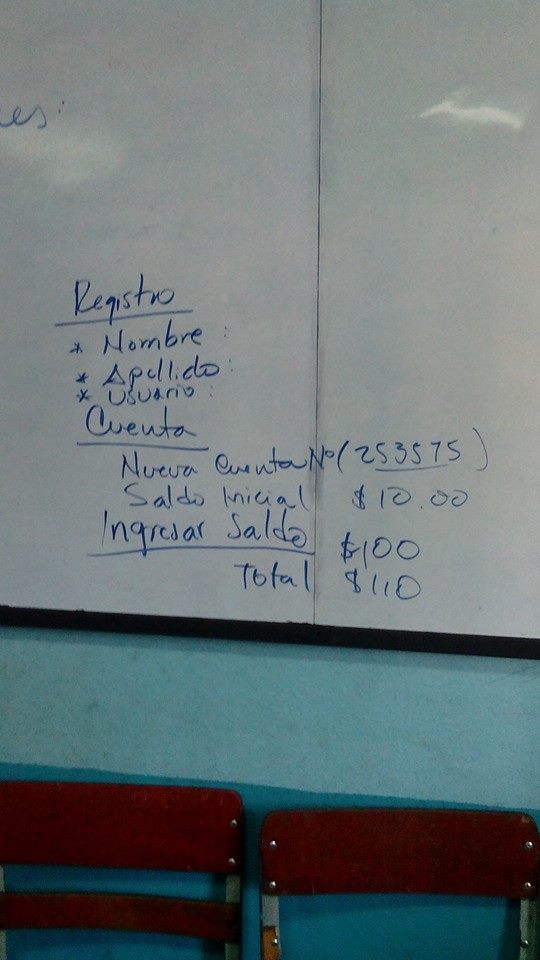 Registro
* Nombre :
* Apellido :
* Usuario :
Cuenta
Nueva Cuenta Nº (253575)
Saldo Inicial $10.00
Ingresar Saldo $100
Total $110